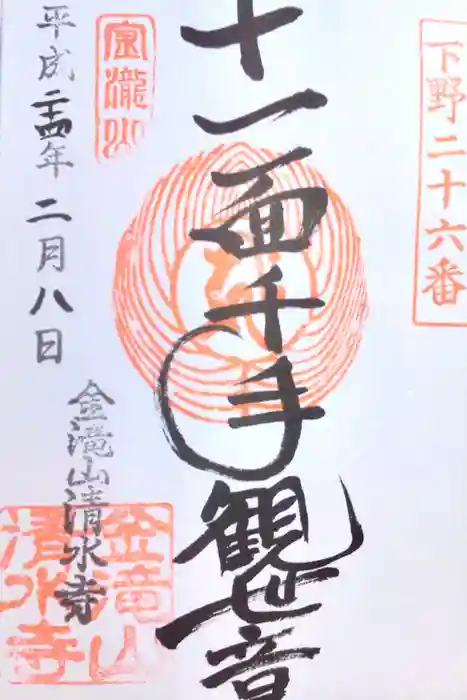 下野二十六番
十一面千手観世音
宝瀧山
平成二十四年二月八日
金滝山清水寺
金滝山
清水寺